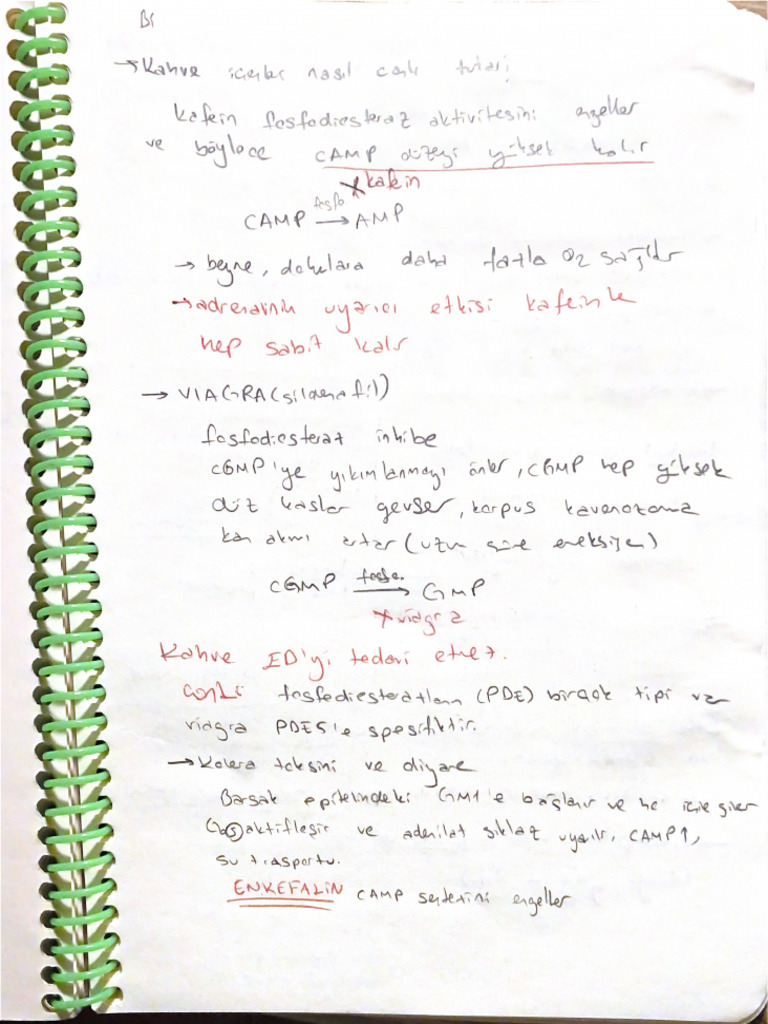 Bi
→ Kahve içenler nasıl canlı tutar?
Kafein fosfodiesteraz aktivitesini engeller
ve böylece CAMP düzeyi yüksek kalır
x kafein
fosfo
CAMP → AMP
→ beyne, dokulara daha fazla O2 sağlar
→ adrenalinin uyarıcı etkisi kafeinle
hep sabit kalır
→ VIAGRA (sildenafil)
fosfodiesteraz inhibe
CGMP'ye yıkımlanmayı önler, CGMP hep yüksek
düz kaslar gevşer, korpus kavernozoma
kan akımı artar (uzun süre ereksiyon)
cGMP → GMP
x viagra
Kahve ED'yi tedavi etmez.
Çünkü fosfodiesterazların (PDE) birçok tipi var
viagra PDE5'e spesifiktir.
→ Kolera toksini ve diyare
Barsak epitelindeki GM1'e bağlanır ve hc içine girer
Gs aktifleşir ve adenilat siklaz uyarılır, CAMP↑,
su trasportu.
ENKEFALİN CAMP sentezini engeller